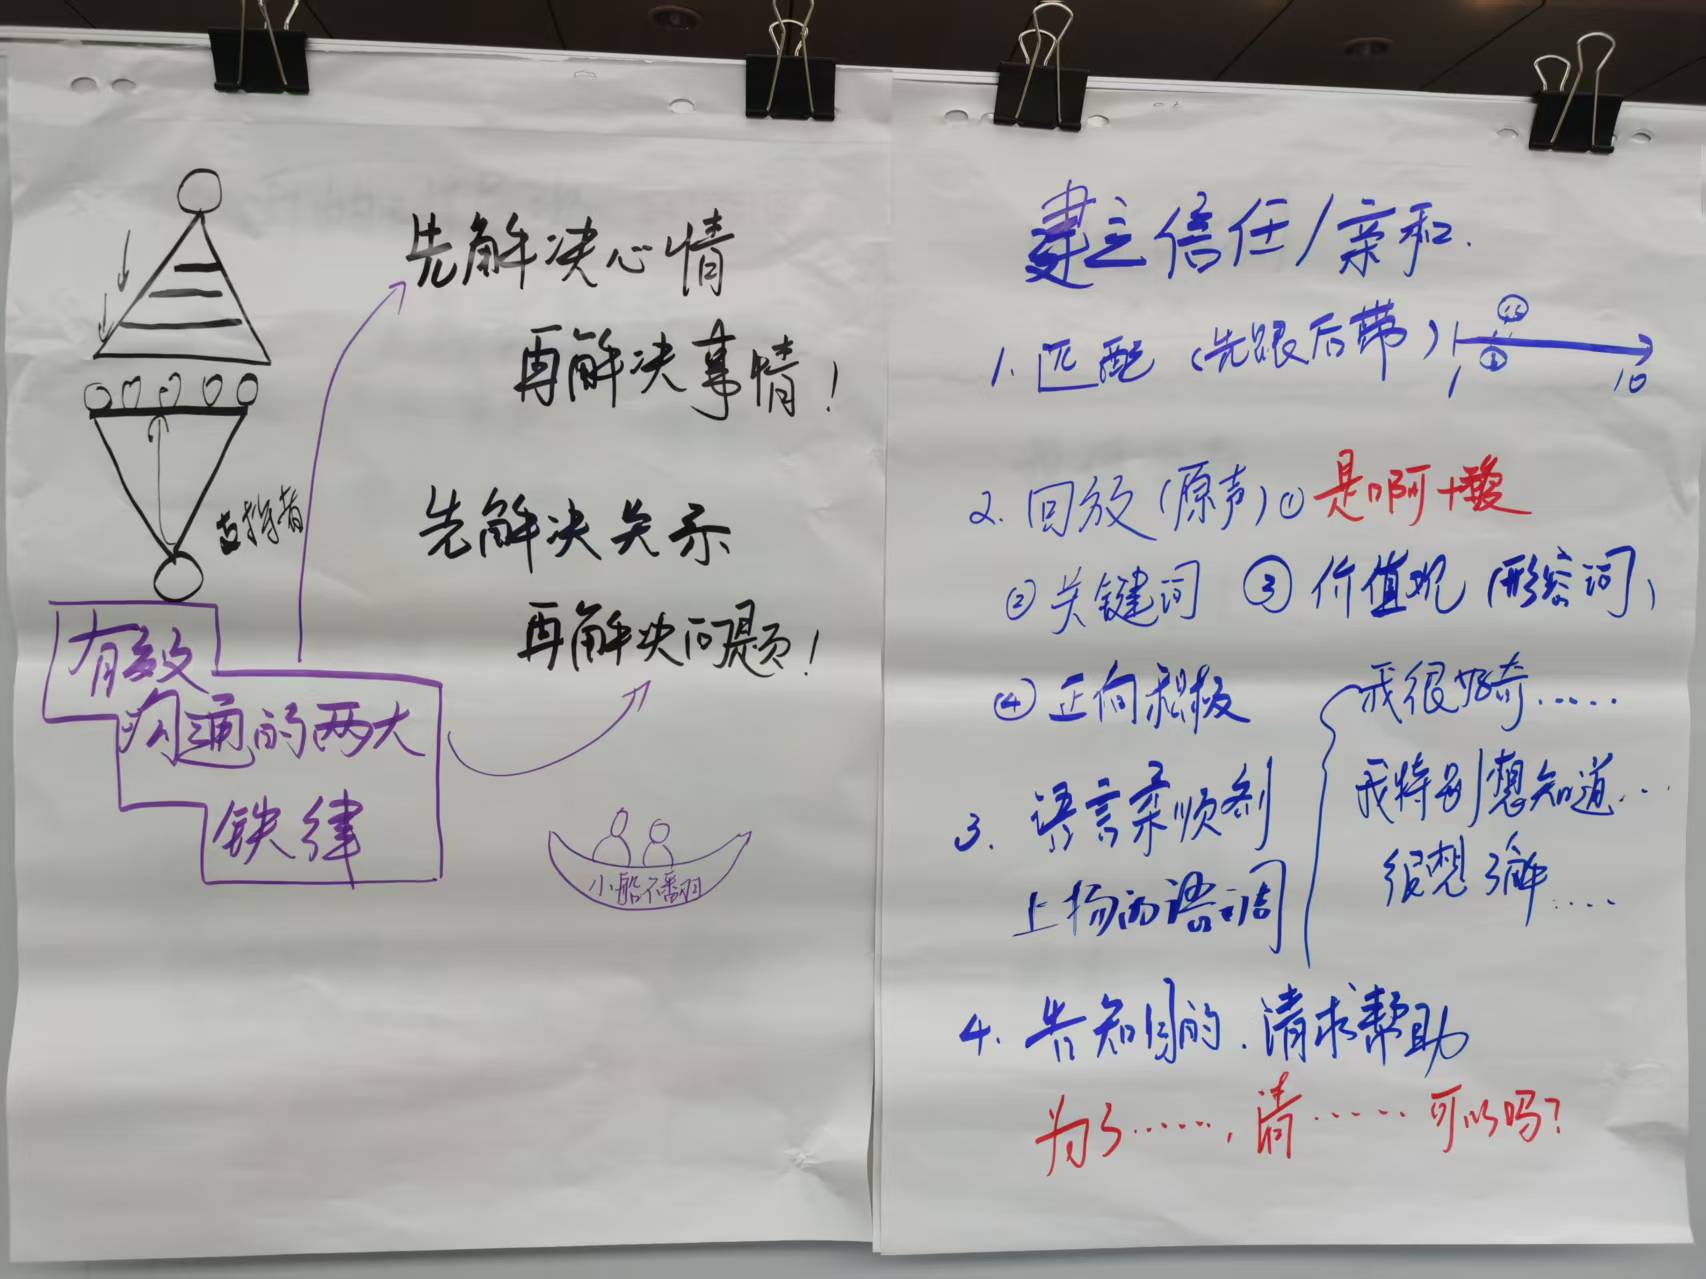 先解决心情
再解决事情！
先解决关系
再解决问题！
支持者
有效
沟通的两大
铁律
小船不翻
建立信任/亲和.
1. 匹配（先跟后带）
1 10
2. 回放（原声）① 是啊+
② 关键词 ③ 价值观（形容词）
④ 正向积极
我很好奇……
我特别想知道…
很想了解……
3. 语言柔顺剂
上扬的语调
4. 告知目的.请求帮助
为了……，请……可以吗？